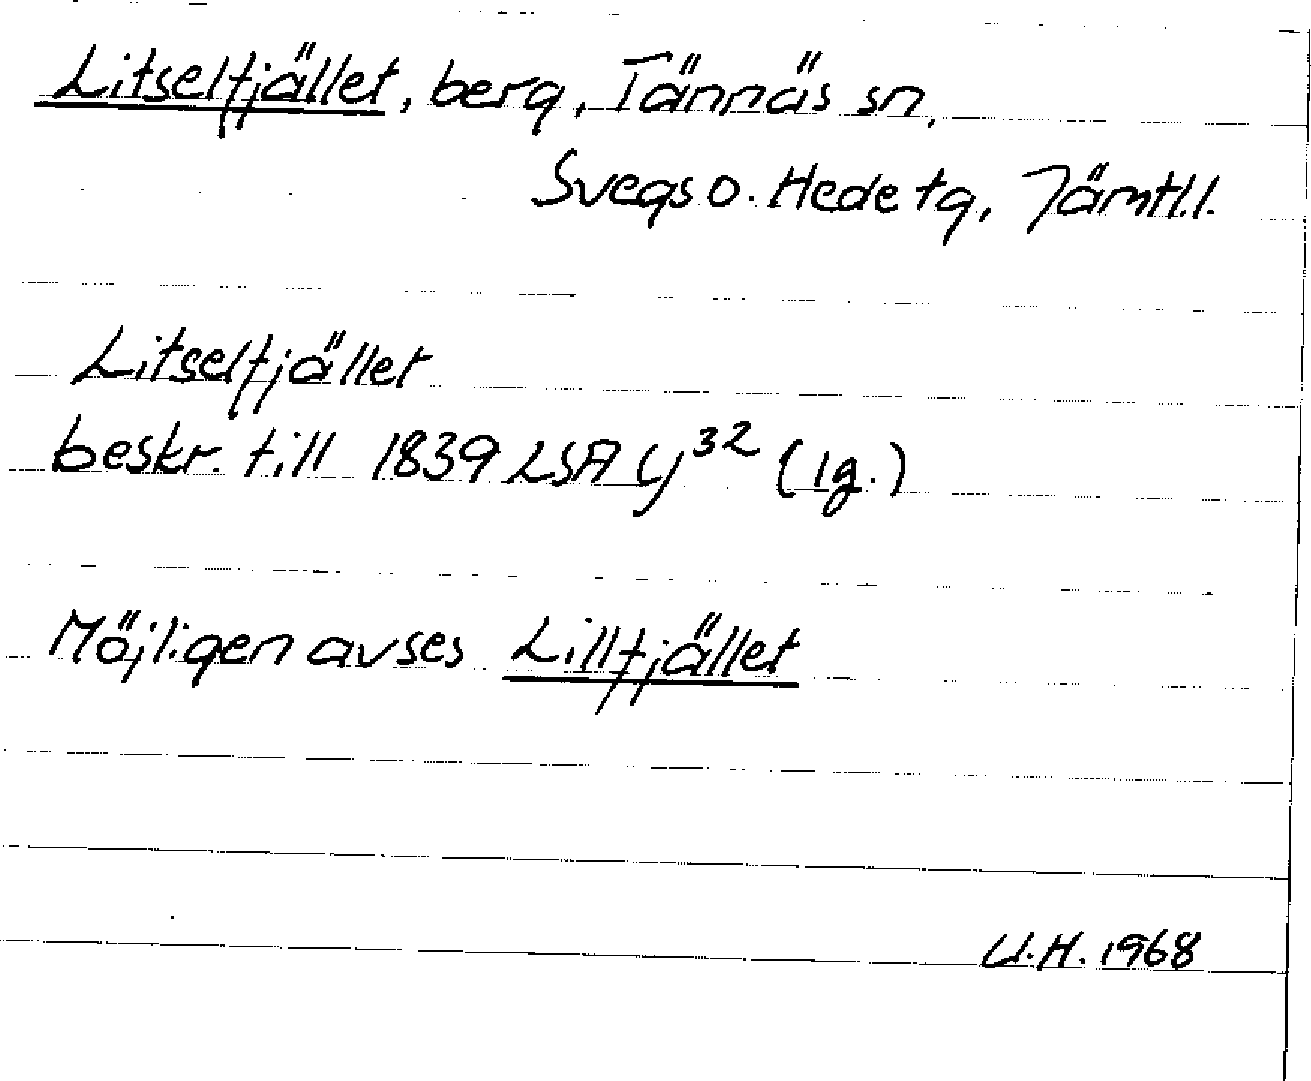 Litselfjället, berg, Tännäs sn,
Svegs o. Hede tg, Jämtl.l.
Litselfjället
beskr. till 1839 LSA y³² (1g.)
Möjligen avses Lillfjället
U.H. 1968